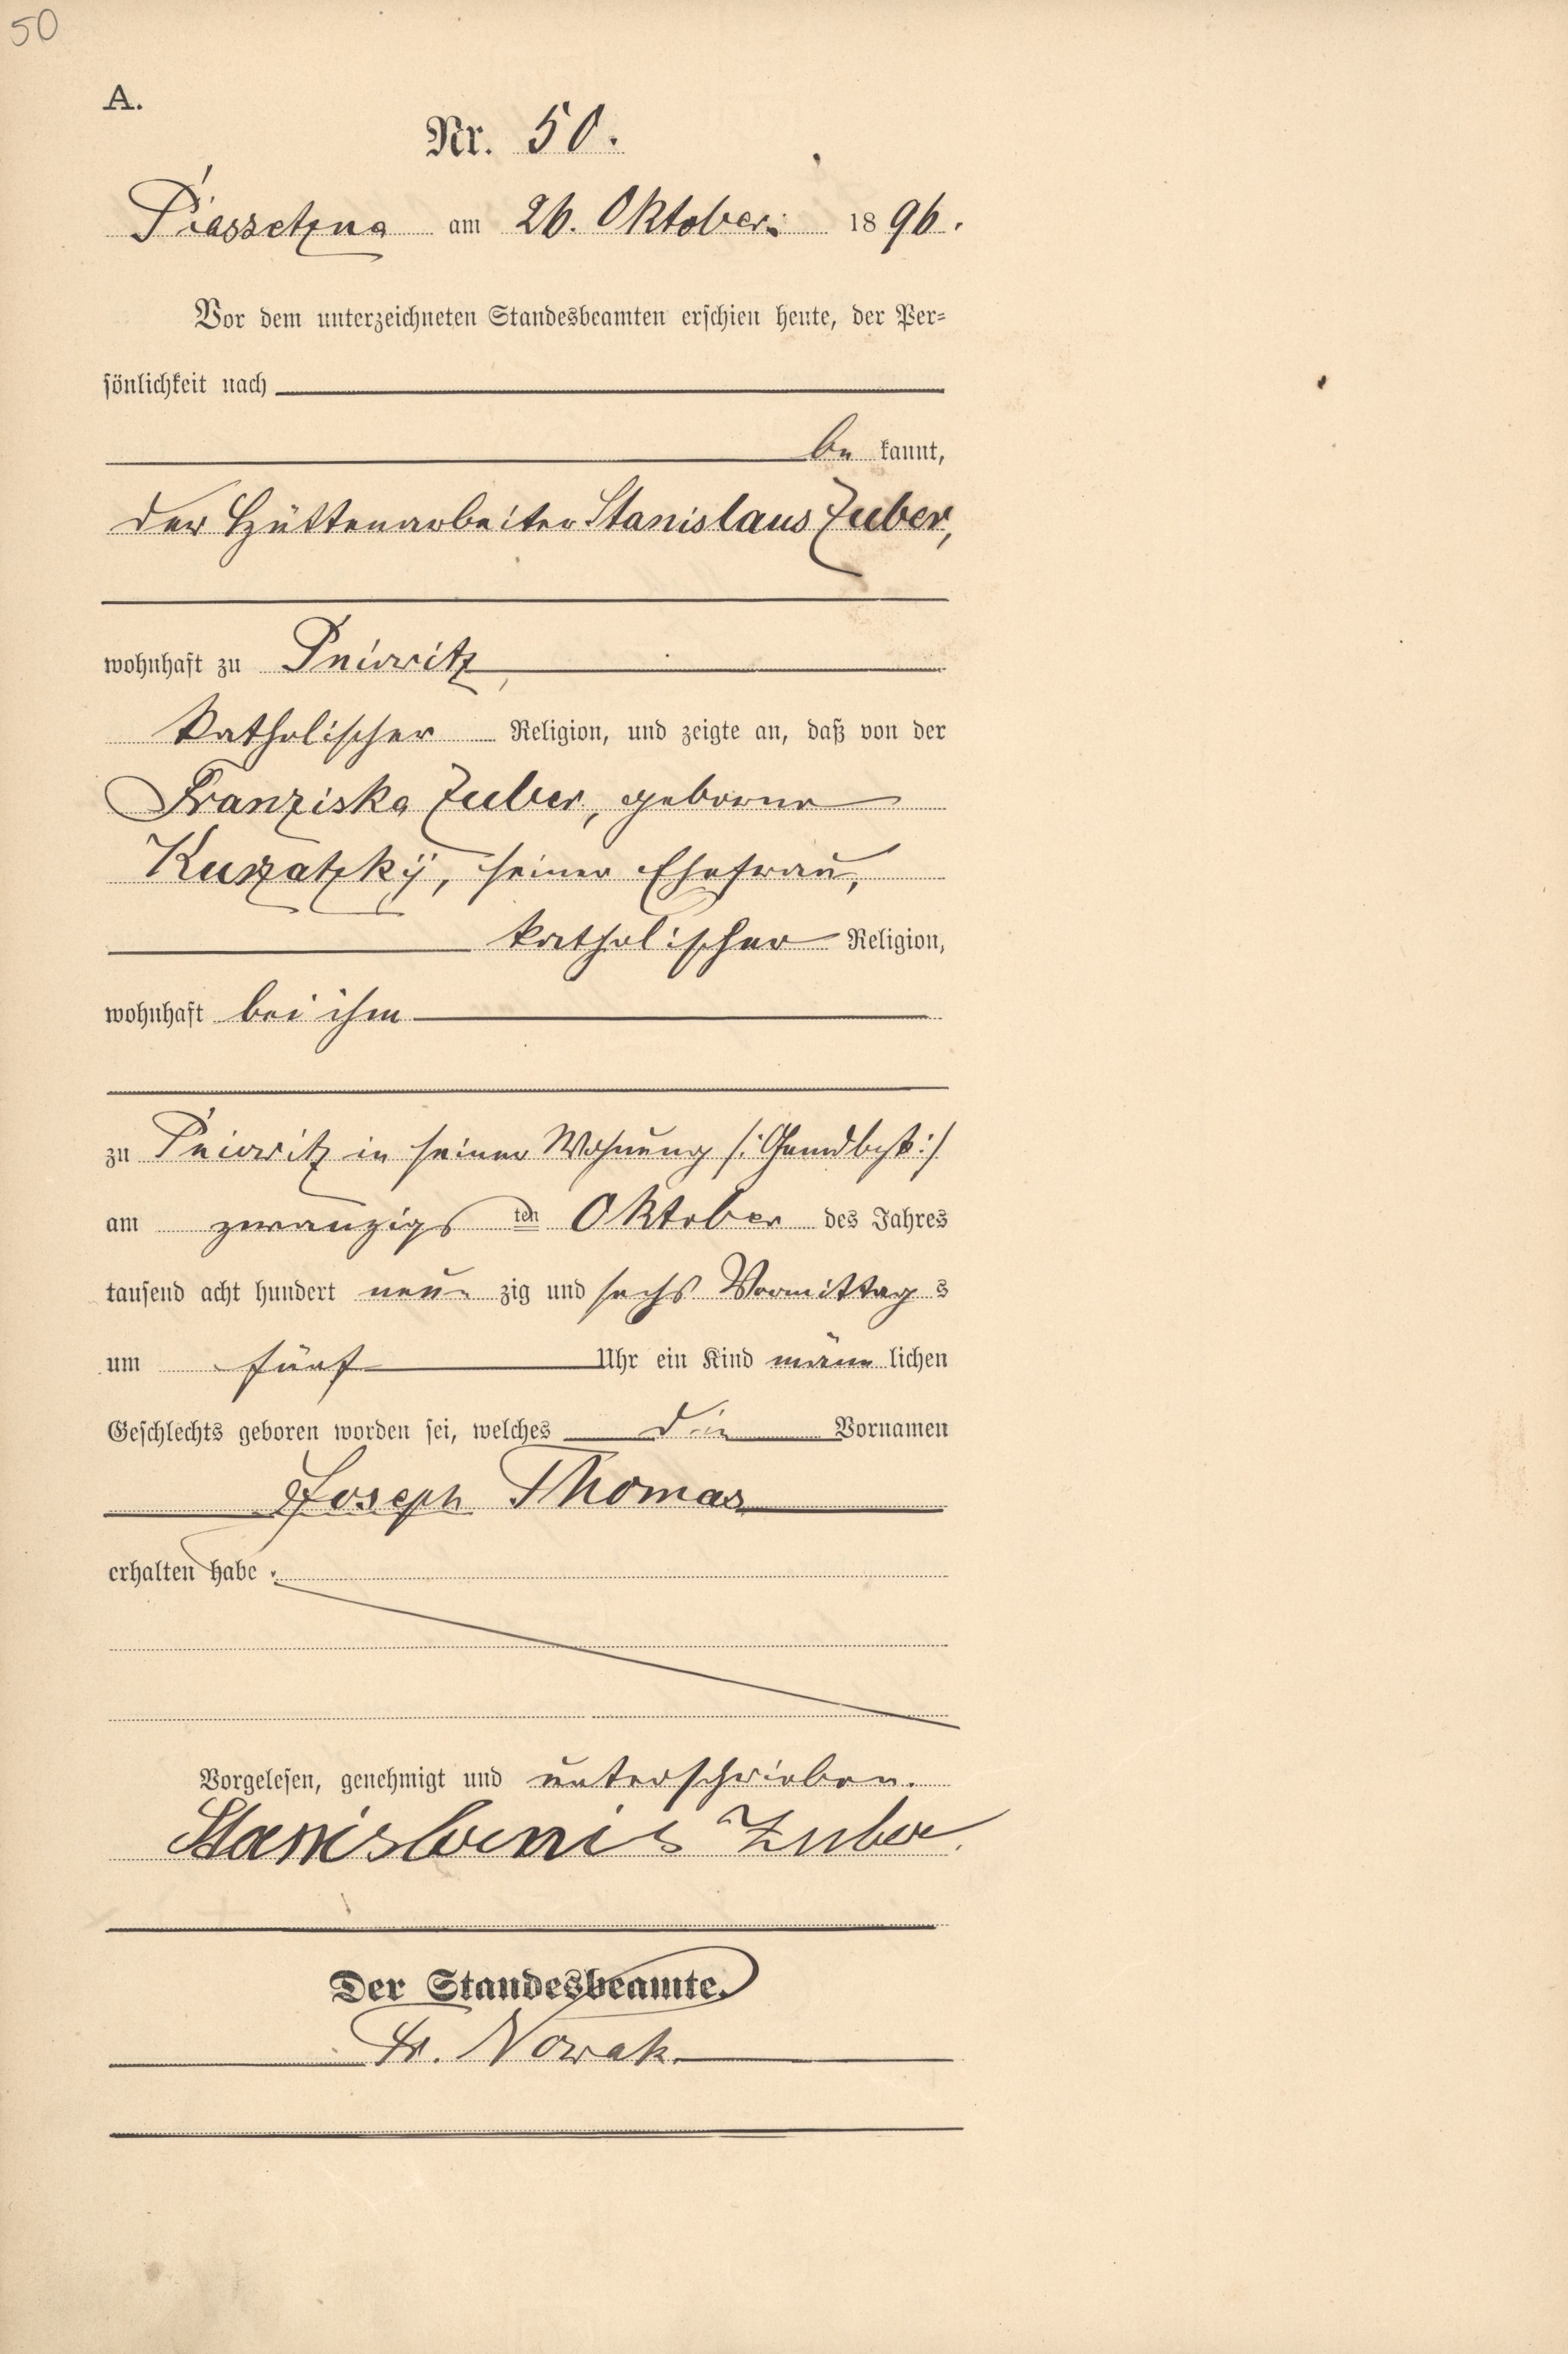 50
A.
Nr. 50.
Piassetzna am 26. Oktober. 1896.
Vor dem unterzeichneten Standesbeamten erschien heute, der Per=
sönlichkeit nach
be kannt,
der Hüttenarbeiter Stanislaus Zuber,
wohnhaft zu Pniowitz,
katholischer Religion, und zeigte an, daß von der
Franziska Zuber, geborne
Kuszatzky, seiner Ehefrau,
katholischer Religion,
wohnhaft bei ihm
zu Pniowitz in seiner Wohnung
am zwanzigs ten Oktober des Jahres
tausend acht hundert neun zig und sechs Vormittag s
um fünf Uhr ein Kind männ lichen
Geschlechts geboren worden sei, welches die Vornamen
Joseph Thomas
erhalten habe.
Vorgelesen, genehmigt und unterschrieben.
Stanislaus Zuber.
Der Standesbeamte.
Fr. Nowak.